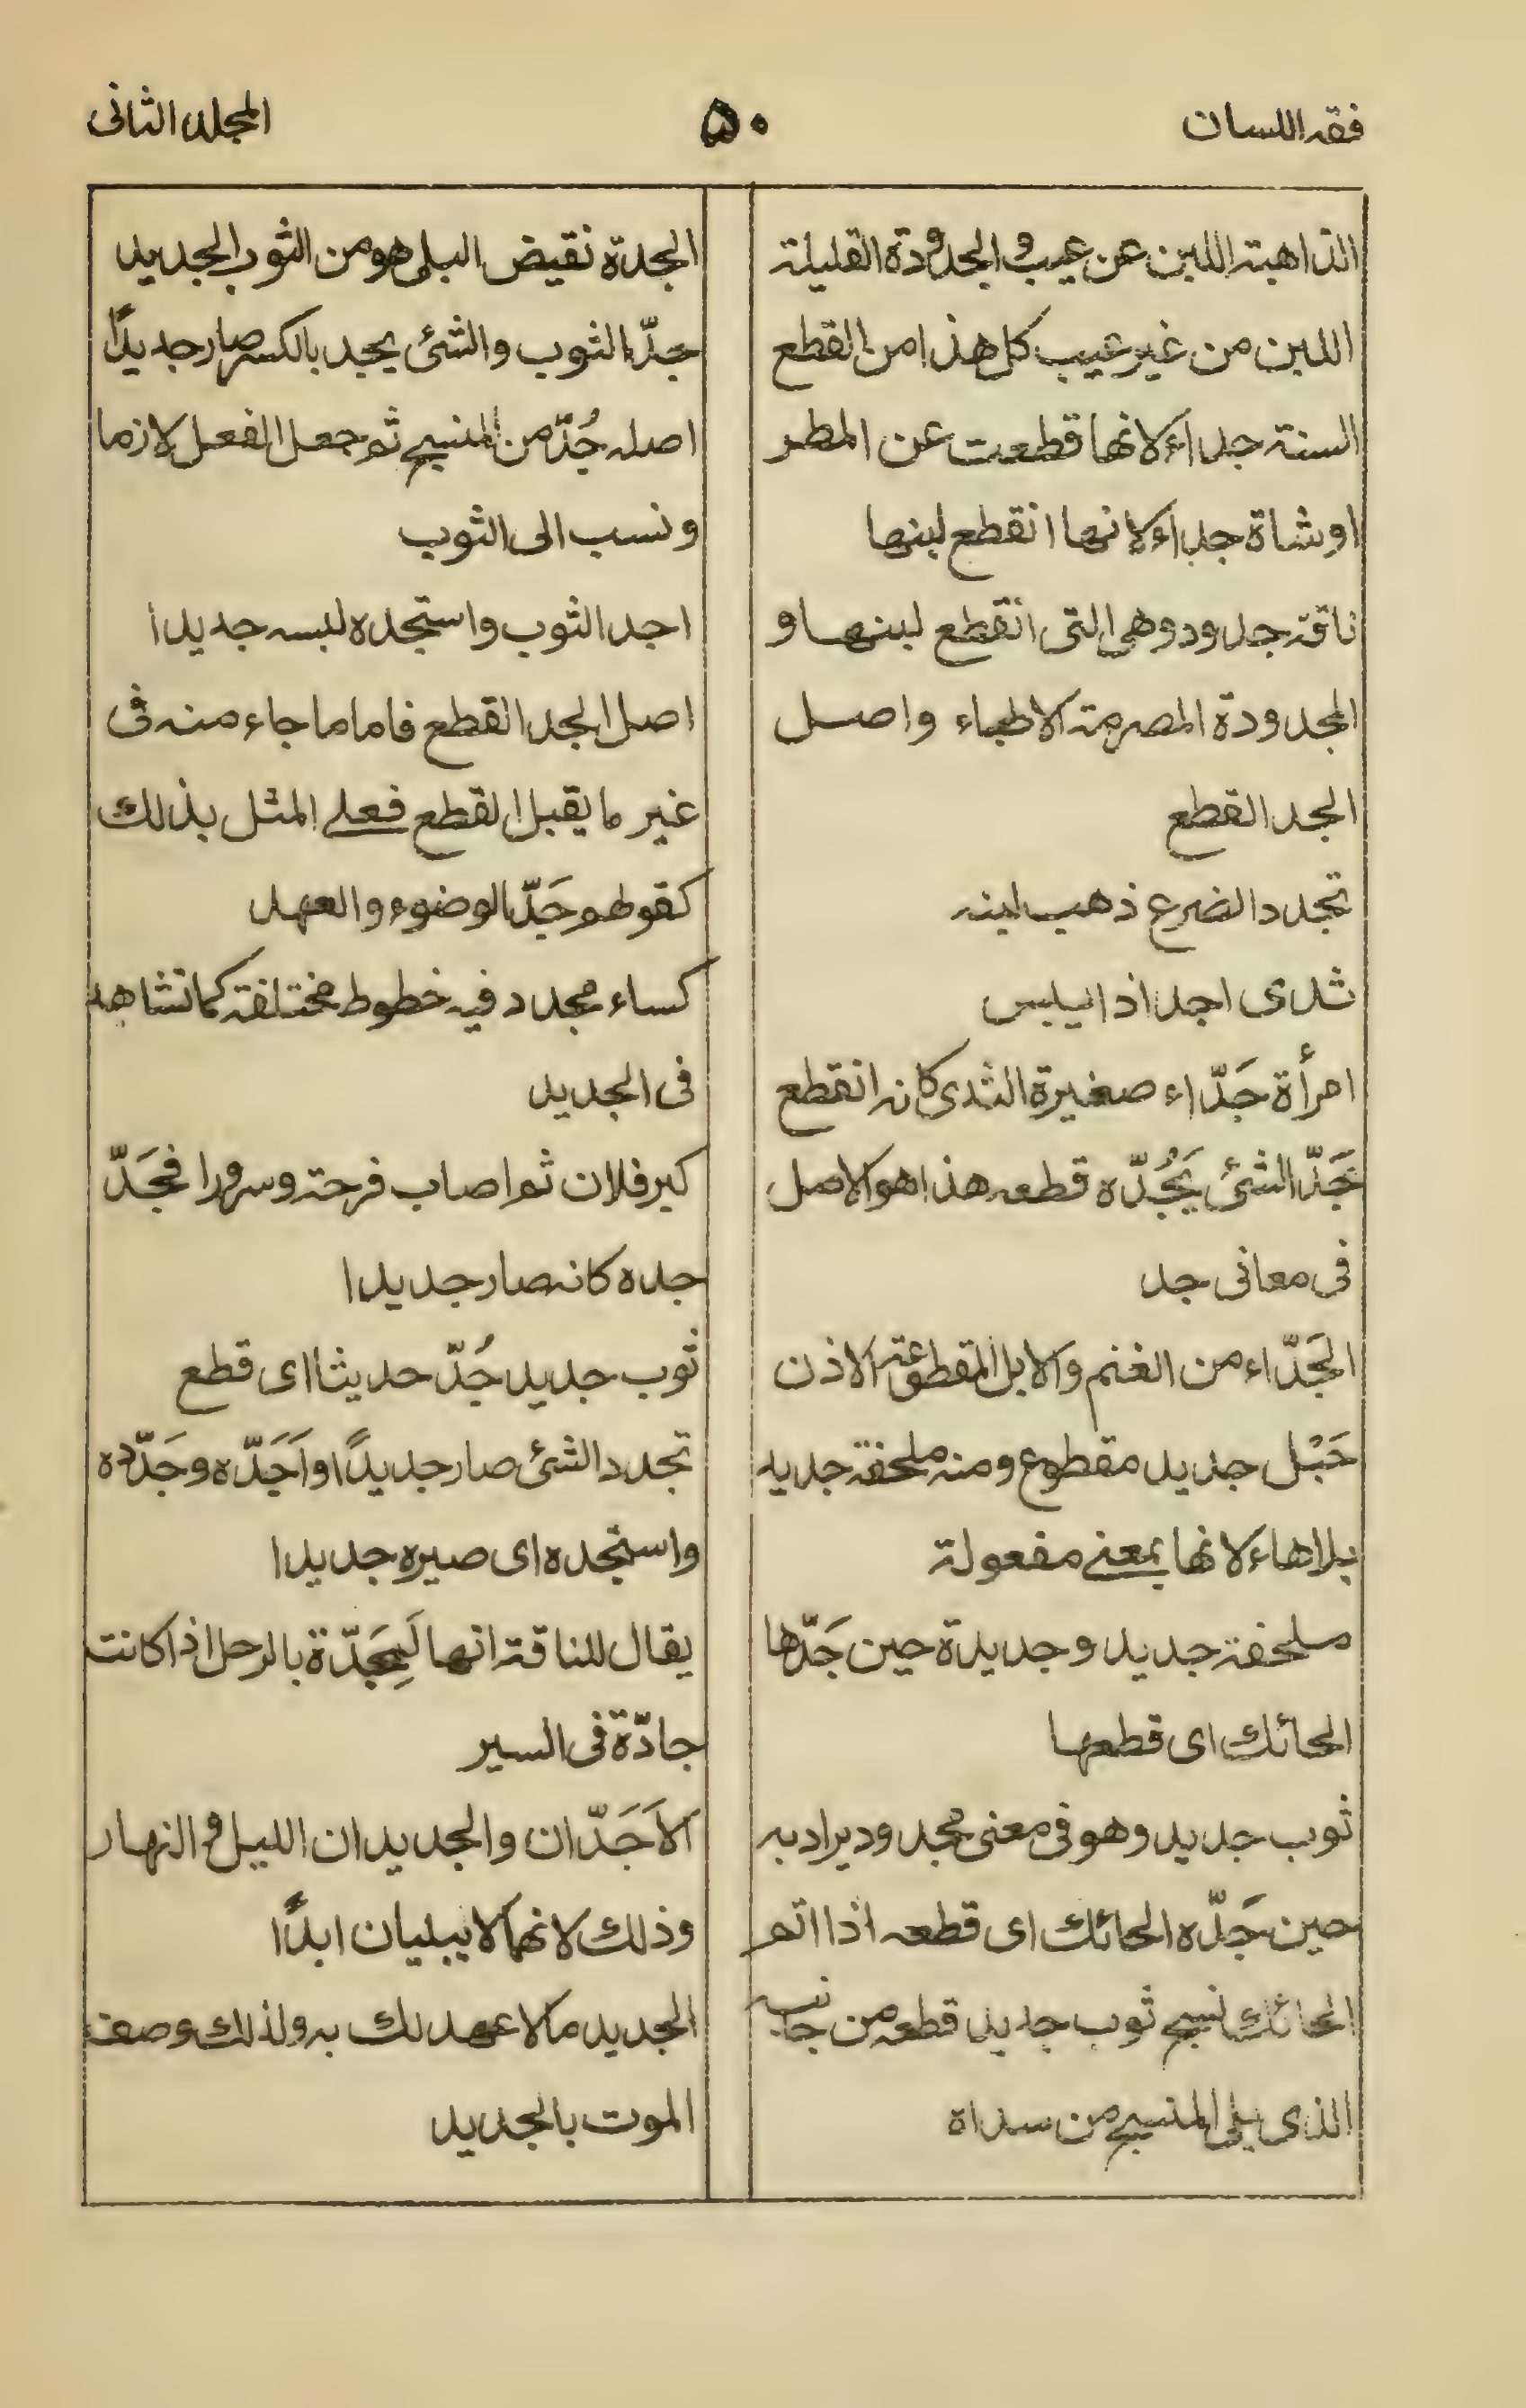 فقه اللسان
۵۰
المجلد الثانی
الذاهبة اللبن عن عیب و المجدودة القلیلة
اللبن من غیر عیب کل هذا من القطع
السنة جداء لانها قطعت عن المطر
او شاة جداء لانها انقطع لبنها
ناقة جدود وهی التی انقطع لبنها و
المجدودة المصرمة الاطباء واصل
الجد القطع
تجدد الضرع ذهب لبنه
ثدی اجد اذا یبس
امرأة جَدّاء صغیرة الثدی کانه انقطع
جَدّ الشئ یَجُدّه قطعه هذا هو الاصل
فی معانی جد
الجَدّاء من الغنم والابل المقطوعة الاذن
حَبْل جدید مقطوع ومنه ملحفة جدید
بلا هاء لانها بمعنے مفعولة
ملحفة جدید وجدیدة حین جَدّها
الحائك ای قطعها
ثوب جدید وهو فی معنی مجدود یراد به
حین جَدّه الحائك ای قطعه اذا اتم
الحائك نسیج ثوب جدید قطعه من جانبه
الذی یلی المنسج من سداة
الجدة نقیض البلی هو من الثوب الجدید
جدّ الثوب والشئ یجد بالکسر صار جدیدًا
اصله جُدّ من المنسج ثم جعل الفعل لازما
ونسب الی الثوب
اجد الثوب واستجده لبسه جدیدا
اصل الجد القطع فاما ما جاء منه فی
غیر ما یقبل القطع فعلے المثل بذلك
کقولهم جَدّ الوضوء والعهد
کساء مجدد فیه خطوط مختلفة کما تشاهد
فی الجدید
کبر فلان ثم اصاب فرحة وسرورا فجَدّ
جده کانه صار جدیدا
ثوب جدید جُدّ حدیثا ای قطع
تجدد الشئ صار جدیدًا واَجَدّه وجَدّده
واستجده ای صیره جدیدا
یقال للناقة انها لَمِجَدّة بالرحل اذا کانت
جادّة فی السیر
الاَجَدّان والجدیدان اللیل و النهار
وذلك لانهما لا یبلیان ابدًا
الجدید ما لا عهد لك به ولذلك وصف
الموت بالجدید